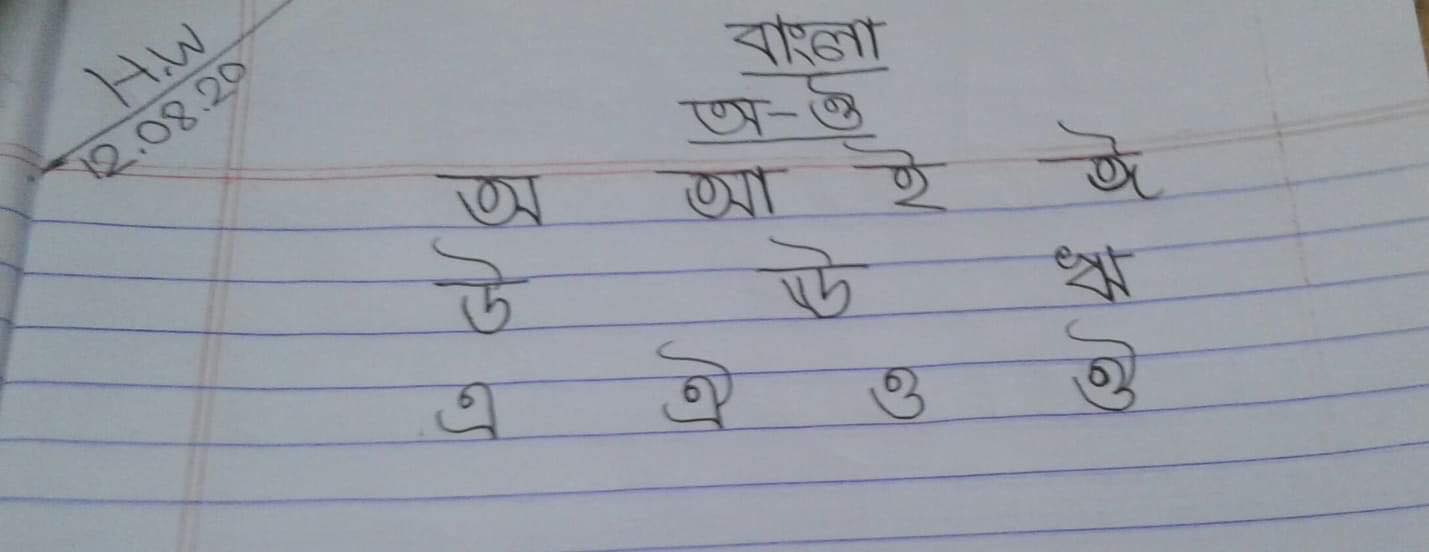 H.W
12.08.20
বাংলা
অ-ঔ
অ আ ই ঈ
উ ঊ ঋ
এ ঐ ও ঔ